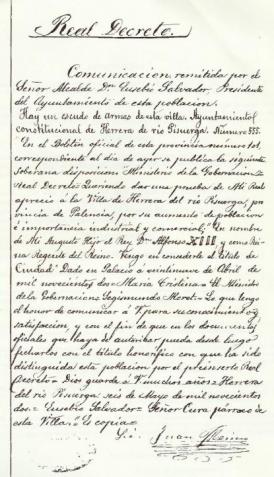 Real Decreto.
Comunicacion remitida por el
Señor Alcalde Dn Eusebio Salvador, Presidente
del Ayuntamiento de esta poblacion.
Hay un escudo de armas de esta villa. Ayuntamiento
constitucional de Herrera de rio Pisuerga. Número 555.
En el Boletin oficial de esta provincia número 101,
correspondiente al dia de ayer se publica la siguiente
Soberana disposicion: Ministerio de la Gobernacion=
Real Decreto= Queriendo dar una prueba de Mi Real
aprecio á la Villa de Herrera del rio Pisuerga, pro
vincia de Palencia, por su aumento de poblacion
é importancia industrial y comercial; En nombre
de Mi Augusto Hijo el Rey Dn Alfonso XIII y como Rei
na Regente del Reino. Vengo en concederle el titulo de
Ciudad. Dado en Palacio á veintinueve de Abril de
mil novecientos dos= Maria Cristina= El Ministro
de la Gobernacion= Segismundo Moret= Lo que tengo
el honor de comunicar á V. para su conocimiento y
satisfaccion, y con el fin de que en los documentos
oficiales que haya de autorizar pueda desde luego
fecharlos con el titulo honorifico con que ha sido
distinguida esta poblacion por el preinserto Real
Decreto= Dios guarde á V. muchos años= Herrera
del rio Pisuerga seis de Mayo de mil novecientos
dos= Eusebio Salvador= Señor Cura parroco de
esta Villa= Es copia=
Juan